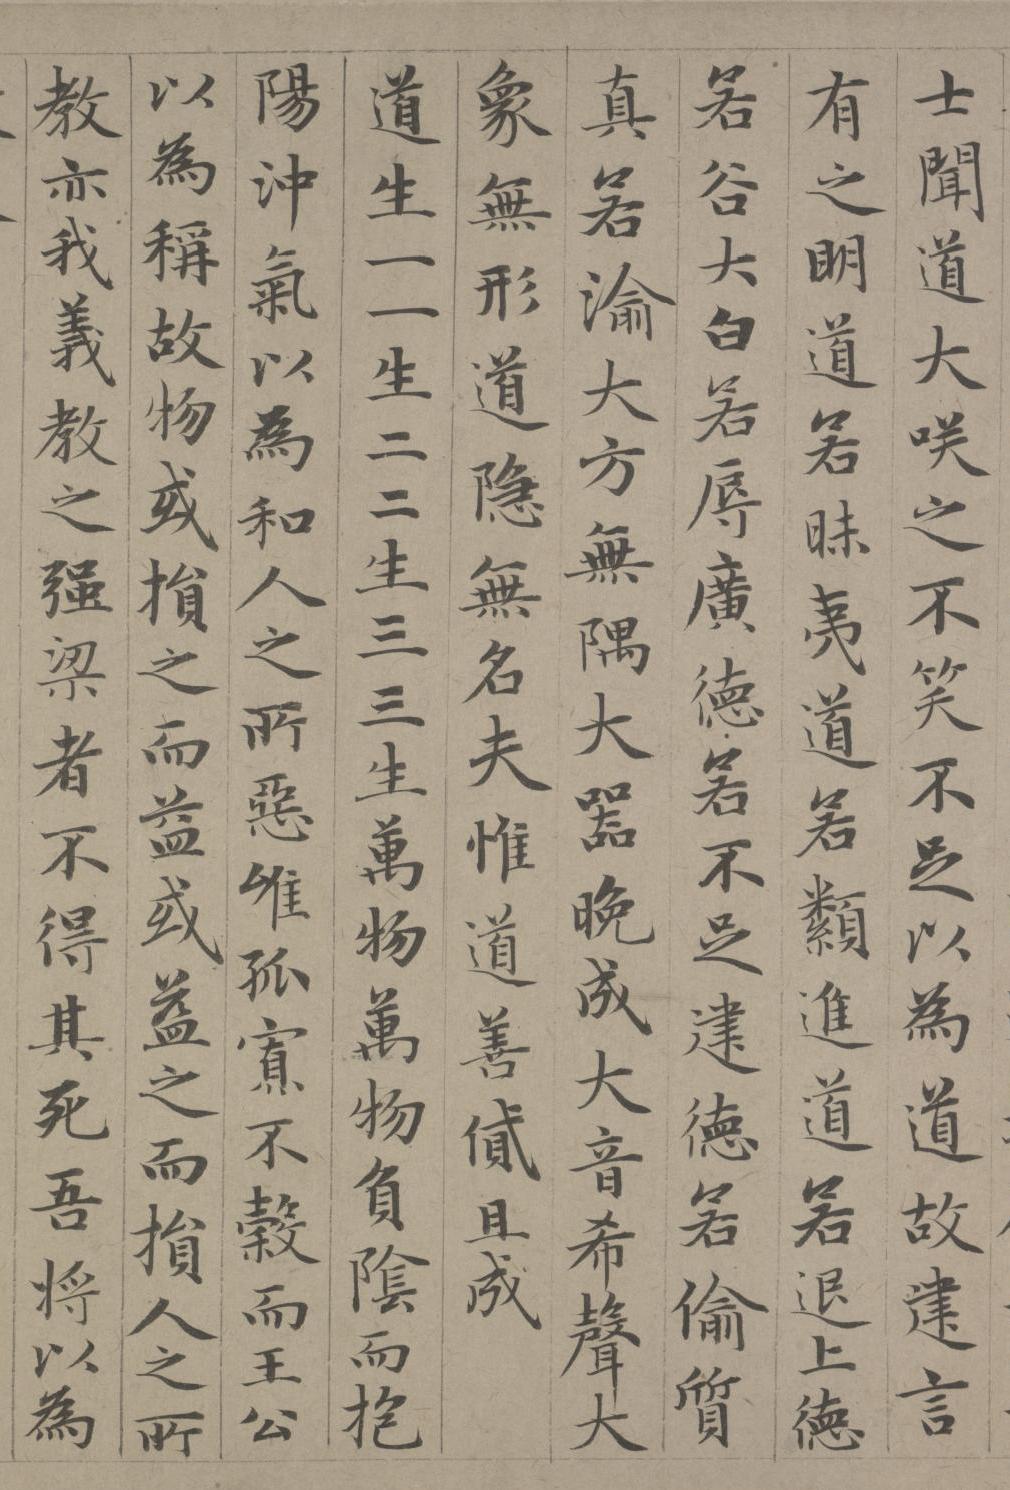 士聞道大咲之不笑不足以為道故建言
有之明道若昧夷道若纇進道若退上德
若谷大白若辱廣德若不足建德若偷質
真若渝大方無隅大器晚成大音希聲大
象無形道隐無名夫惟道善貸且成
道生一一生二二生三三生萬物萬物負陰而抱
陽沖氣以為和人之所惡唯孤寡不穀而王公
以為稱故物或損之而益或益之而損人之所
教亦我義教之强梁者不得其死吾将以為